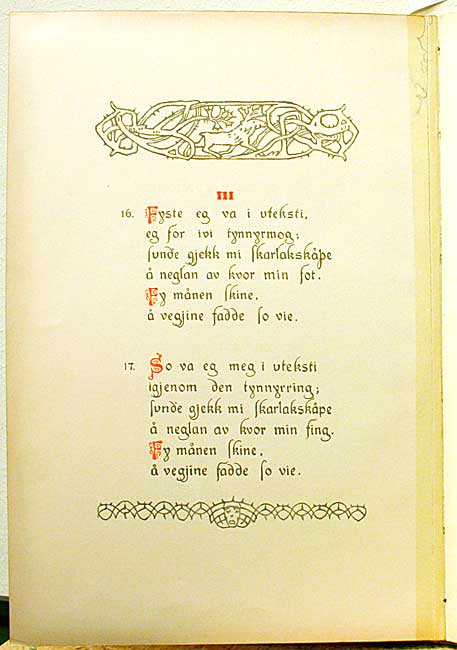 III
16. Fyste eg va i uteksti,
eg for ivi tynnyrmog;
sunde gjekk mi skarlakskåpe
å neglan av kvor min fot.
Fy månen skine,
å vegjine fadde so vie.
17. So va eg meg i uteksti
igjenom den tynnyrring;
sunde gjekk mi skarlakskåpe
å neglan av kvor min fing.
Fy månen skine,
å vegjine fadde so vie.